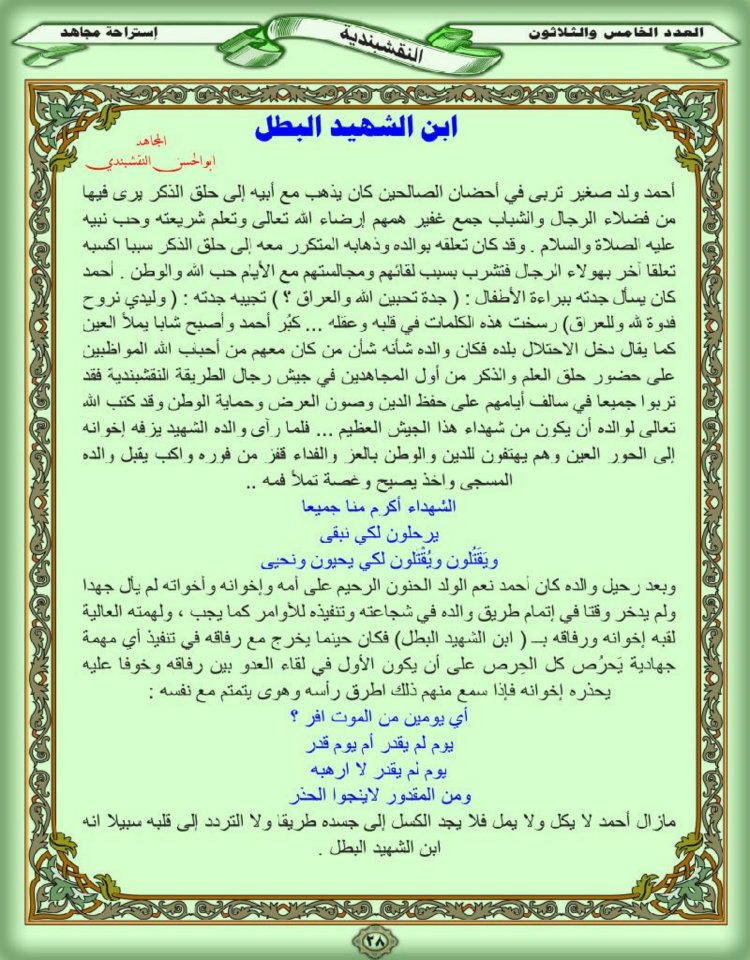 العدد الخامس والثلاثون
النقشبندية
إستراحة مجاهد
ابن الشهيد البطل
المجاهد
ابوالحسن النقشبندي
أحمد ولد صغير تربى في أحضان الصالحين كان يذهب مع أبيه إلى حلق الذكر يرى فيها
من فضلاء الرجال والشباب جمع غفير همهم إرضاء الله تعالى وتعلم شريعته وحب نبيه
عليه الصلاة والسلام . وقد كان تعلقه بوالده وذهابه المتكرر معه إلى حلق الذكر سببا اكسبه
تعلقا آخر بهولاء الرجال فتشرب بسبب لقائهم ومجالستهم مع الأيام حب الله والوطن . أحمد
كان يسأل جدته ببراءة الأطفال : ( جدة تحبين الله والعراق ؟ ) تجيبه جدته : ( وليدي نروح
فدوة لله وللعراق) رسخت هذه الكلمات في قلبه وعقله ... كبُر أحمد وأصبح شابا يملأ العين
كما يقال دخل الاحتلال بلده فكان والده شأنه شأن من كان معهم من أحباب الله المواظبين
على حضور حلق العلم والذكر من أول المجاهدين في جيش رجال الطريقة النقشبندية فقد
تربوا جميعا في سالف أيامهم على حفظ الدين وصون العرض وحماية الوطن وقد كتب الله
تعالى لوالده أن يكون من شهداء هذا الجيش العظيم ... فلما رآى والده الشهيد يزفه إخوانه
إلى الحور العين وهم يهتفون للدين والوطن بالعز والفداء قفز من فوره واكب يقبل والده
المسجى واخذ يصيح وغصة تملأ فمه ..
الشهداء أكرم منا جميعا
يرحلون لكي نبقى
ويَقتُلون ويُقْتَلون لكي يحيون ونحيى
وبعد رحيل والده كان أحمد نعم الولد الحنون الرحيم على أمه وإخوانه وأخواته لم يأل جهدا
ولم يدخر وقتا في إتمام طريق والده في شجاعته وتنفيذه للأوامر كما يجب ، ولهمته العالية
لقبه إخوانه ورفاقه بــ ( ابن الشهيد البطل) فكان حينما يخرج مع رفاقه في تنفيذ أي مهمة
جهادية يَحرُص كل الحِرص على أن يكون الأول في لقاء العدو بين رفاقه وخوفا عليه
يحذره إخوانه فإذا سمع منهم ذلك اطرق رأسه وهوى يتمتم مع نفسه :
أي يومين من الموت افر ؟
يوم لم يقدر أم يوم قدر
يوم لم يقدر لا ارهبه
ومن المقدور لاينجوا الحذر
مازال أحمد لا يكل ولا يمل فلا يجد الكسل إلى جسده طريقا ولا التردد إلى قلبه سبيلا انه
ابن الشهيد البطل .
٢٨